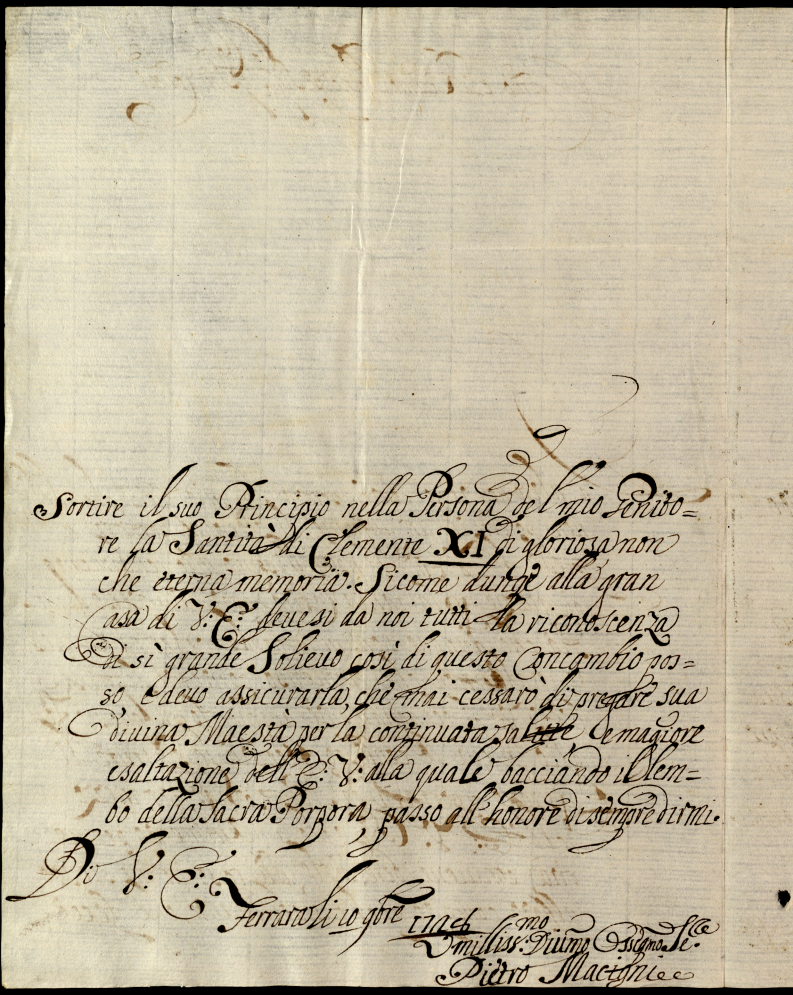 Sortire il suo Principio nella Persona del mio Genito=
re la Santità di Clemente XI di gloriosa non
che eterna memoria. Sicome dunqe alla gran
Casa di V: E: devesi da noi tutti la riconoscenza
di sì grande Solievo così di questo Concambio pos=
so, e devo assicurarla, che mai cessarò di pregare sua
divina Maestà per la continuata salute e magiore
esaltazione dell' E: V: alla quale bacciando il Lem=
bo della Sacra Porpora passo all' honore di sempre dirmi.
Di V: E:
10 9bre
Umiliss:mo Divmo Ossegmo
Pietro